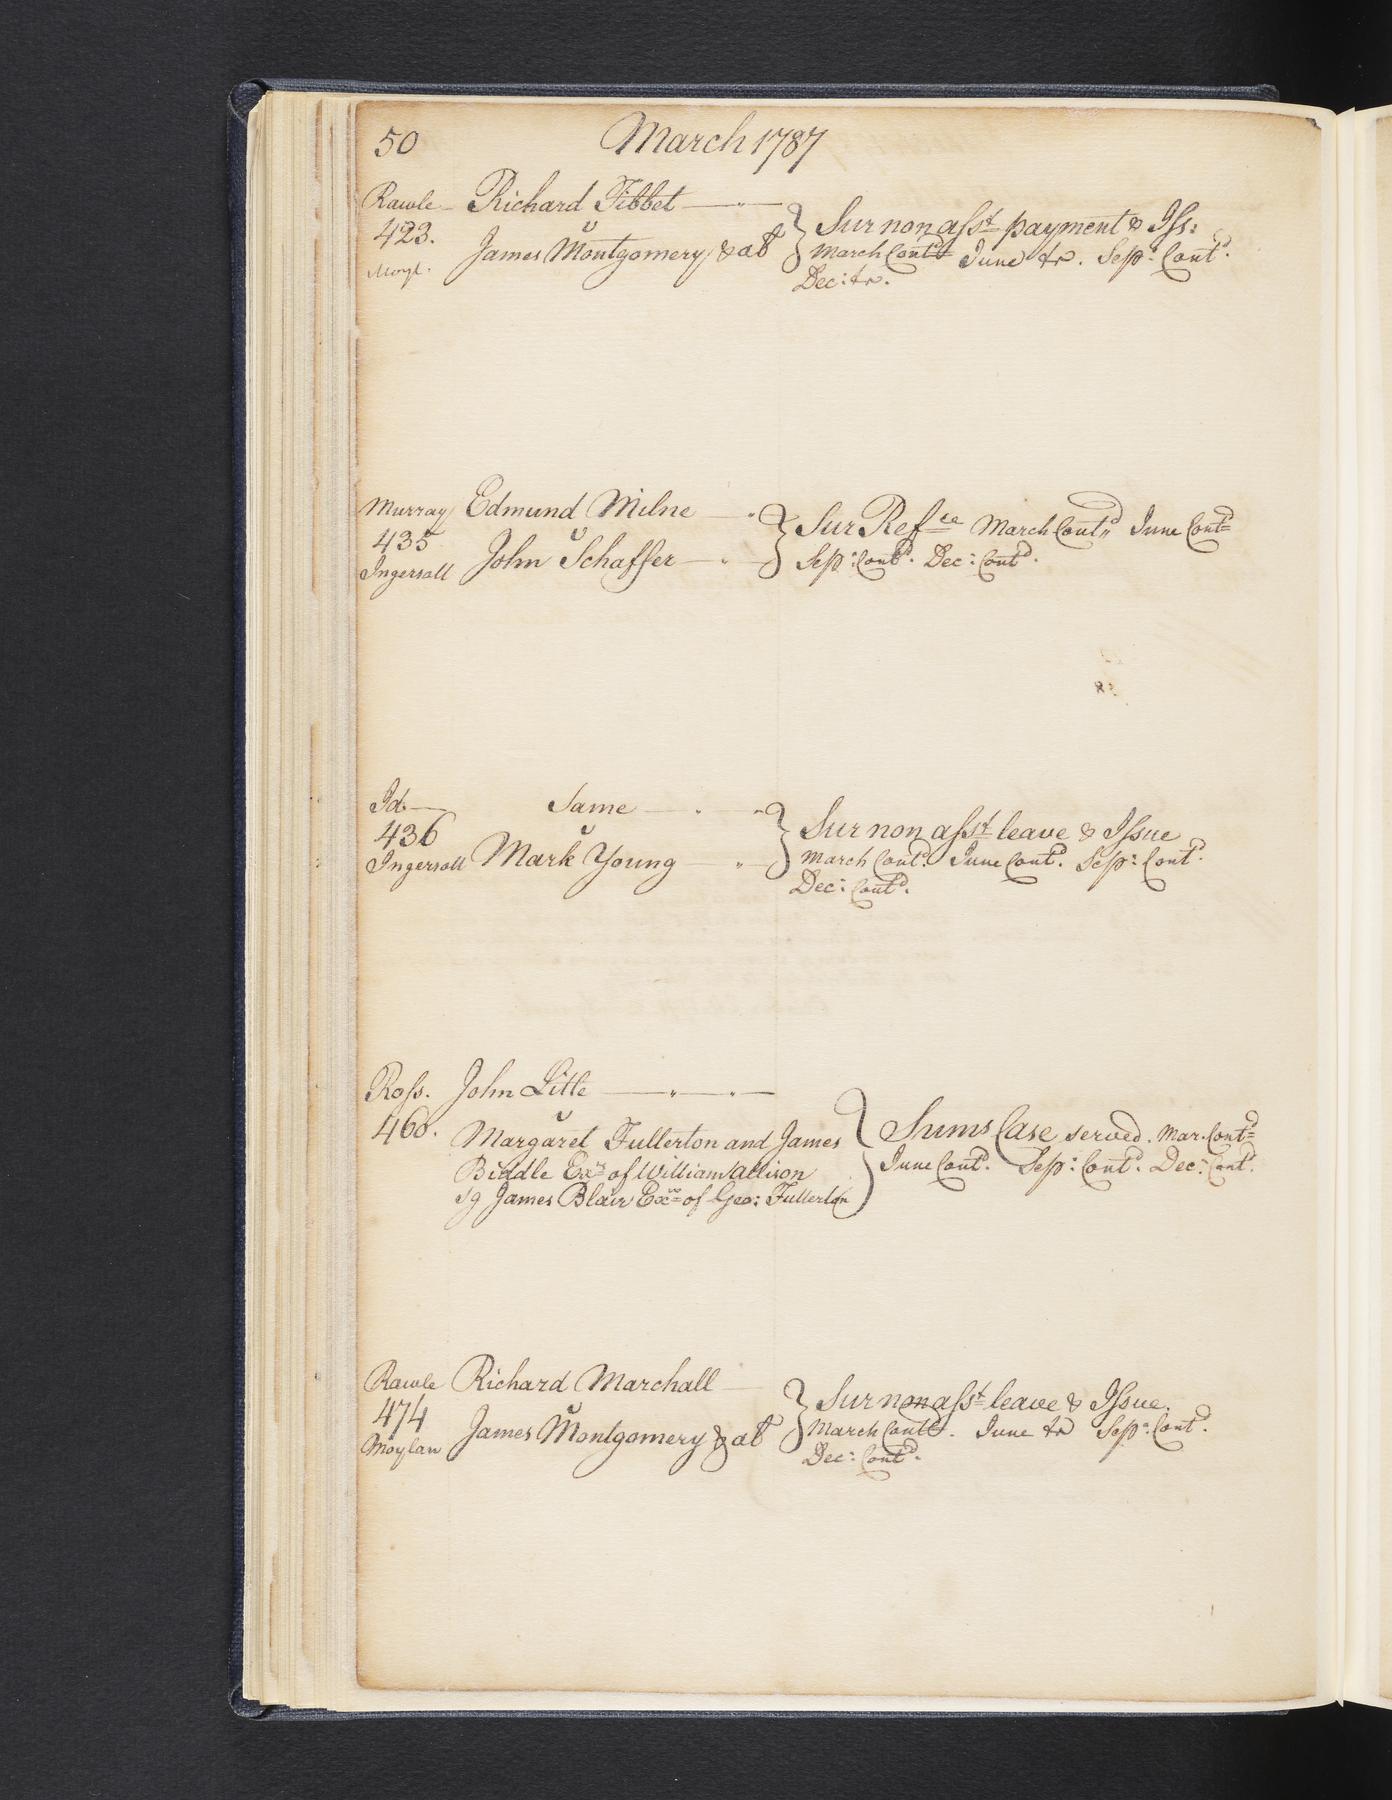 50 March 1787
Rawle Richard Tibbet
423. v
Moyl. James Montgomery & al } Sur non asst payment & Iss:
March Contd June tr. Sep: Contd.
Dec: tr.
Murray Edmund Milne
435 v
Ingersoll John Schaffer } Sur Refce March Contd June Contd
Sep: Contd. Dec: Contd.
Id. Same
436 v
Ingersoll Mark Young } Sur non asst leave & Issue
March Contd. June Contd. Sep: Contd.
Dec: Contd.
Ross. John Litle
460. v
Margaret Fullerton and James
Biddle Exrs of William Allison
sg James Blair Exr of Geo: Fullerton } Sums Case served. Mar. Contd
June Contd. Sep: Contd. Dec: Contd.
Rawle Richard Marchall
474 v
Moylan James Montgomery & al } Sur non asst leave & Issue.
March Contd. June tr Sep: Contd.
Dec: Contd.